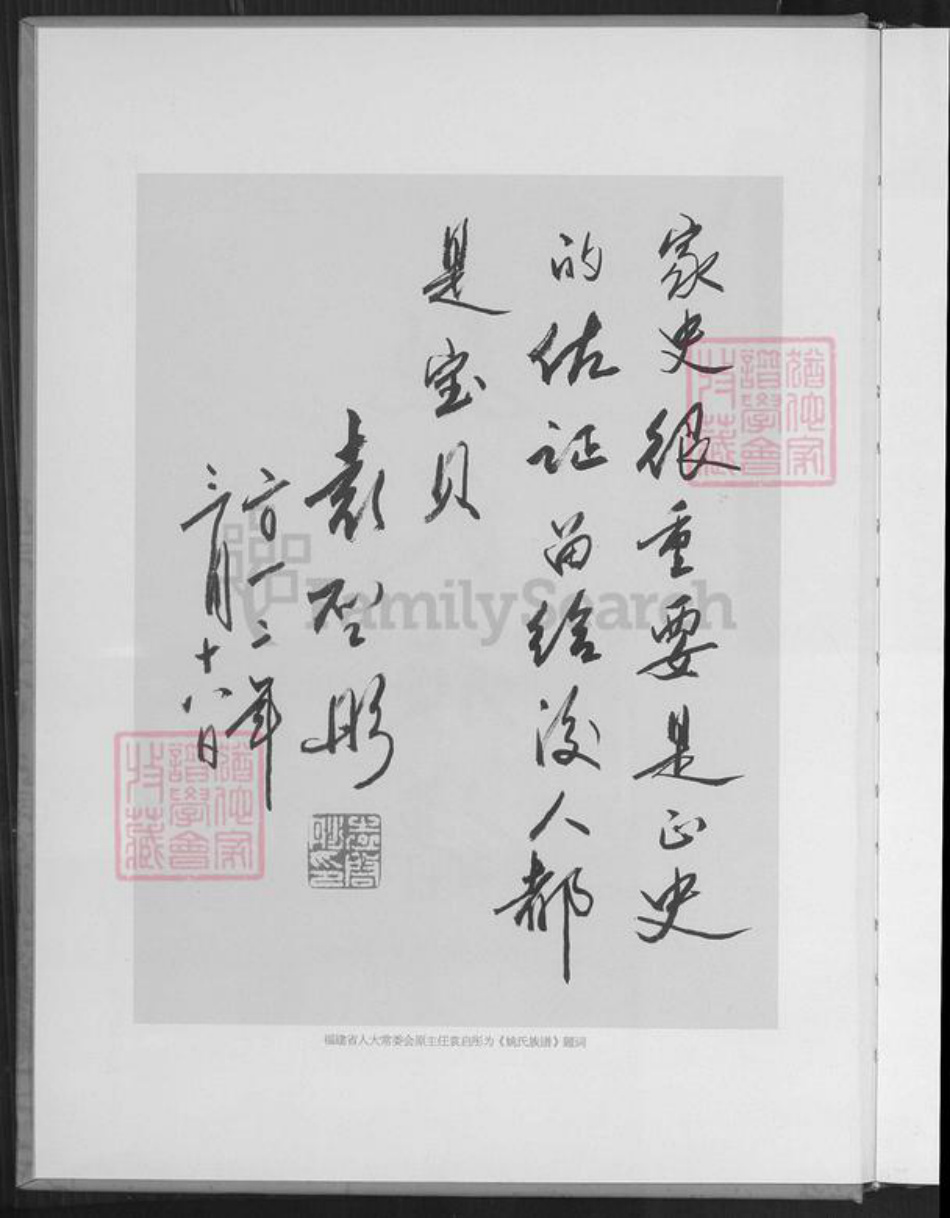 家史很重要是正史
的佐证留给後人都
是宝贝
袁启彤
二〇一二年
三月十八日
福建省人大常委会原主任袁启彤为《姚氏族谱》题词
猶他家
譜學會
FamilySearch
猶他家
譜學會